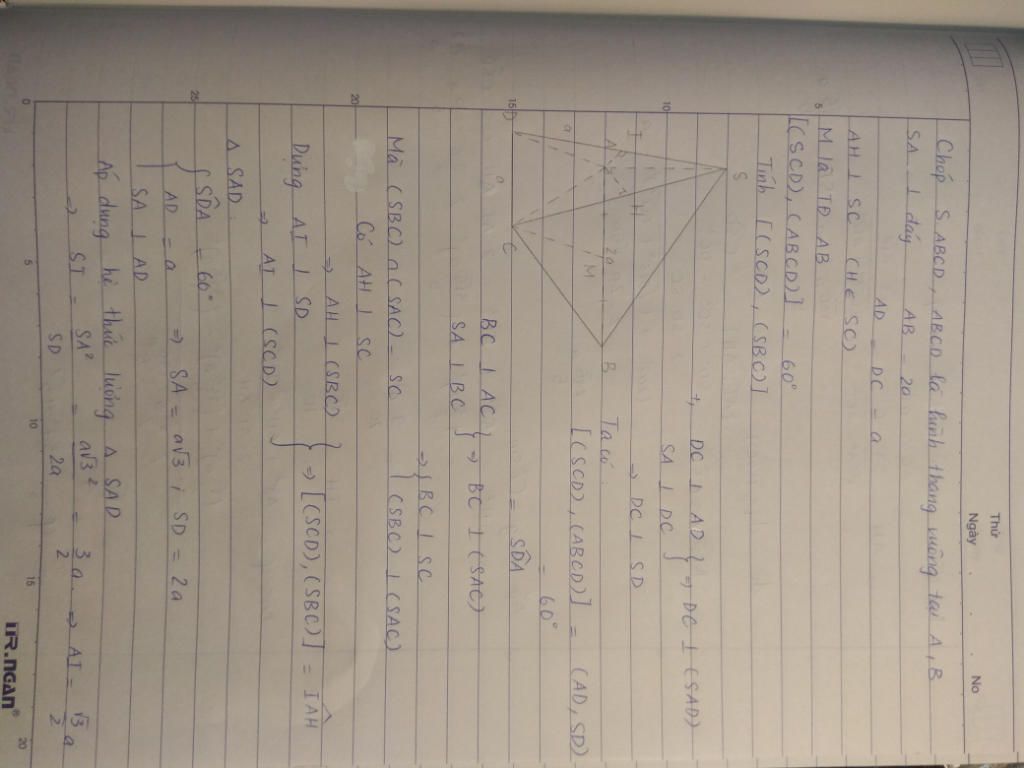 Thứ
Ngày . . No
Chóp S.ABCD, ABCD là hình thang vuông tại A, B
SA ⊥ đáy AB = 2a
AD = DC = a
AH ⊥ SC (H ∈ SC)
M là TĐ AB
[(SCD), (ABCD)] = 60°
Tính [(SCD), (SBC)]
S
I
H
A
2a
B
a
M
D
C
a
+, DC ⊥ AD } ⇒ DC ⊥ (SAD)
SA ⊥ DC
⇒ DC ⊥ SD
Ta có:
[(SCD), (ABCD)] = (AD, SD)
= 60°
= SDA
BC ⊥ AC } ⇒ BC ⊥ (SAC)
SA ⊥ BC
⇒ { BC ⊥ SC
Mà (SBC) ∩ (SAC) = SC { (SBC) ⊥ (SAC)
Có AH ⊥ SC
⇒ AH ⊥ (SBC) } ⇒ [(SCD), (SBC)] = IAH
Dựng AI ⊥ SD
⇒ AI ⊥ (SCD)
Δ SAD:
{ SDA = 60°
AD = a ⇒ SA = a√3 ; SD = 2a
SA ⊥ AD
Áp dụng hệ thức lượng Δ SAD
⇒ SI = SA²/SD = a√3²/2a = 3/2 a. ⇒ AI = √3/2 a
0 5 10 15 20
5
10
15
20
25
TR.NGAN®